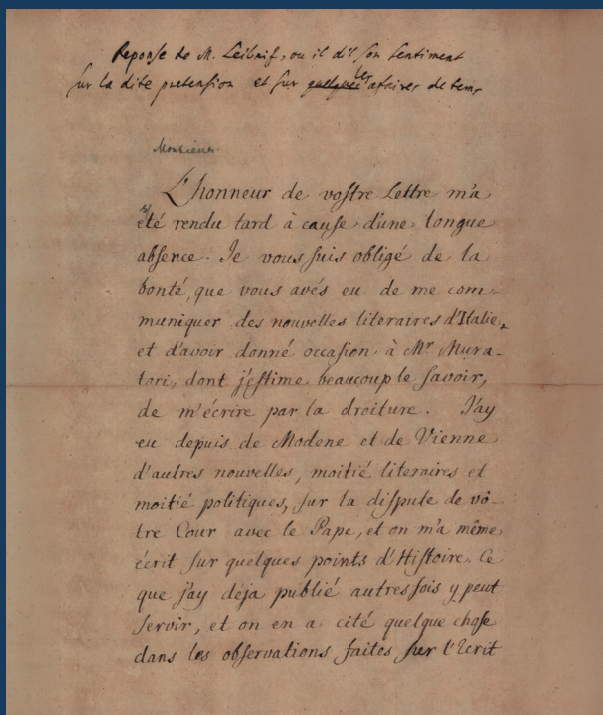 Reponse de M. Leibniz, ou il dit son sentiment
sur la dite pretension et sur quelques les afaires de tems
Monsieur
L'honneur de vostre Lettre m'a
été rendu tard à cause d'une longue
absence. Je vous suis obligé de la
bonté, que vous avés eu de me com-
muniquer des nouvelles literaires d'Italie,
et d'avoir donné occasion à Mr Mura-
tori, dont j'estime beaucoup le savoir,
de m'écrire par la droiture. J'ay
eu depuis de Modene et de Vienne
d'autres nouvelles, moitié literaires et
moitié politiques, sur la dispute de vô-
tre Cour avec le Pape, et on m'a même
écrit sur quelques points d'Histoire. Ce
que j'ay déja publié autresfois y peut
servir, et on en a cité quelque chose
dans les observations faites sur l'Ecrit